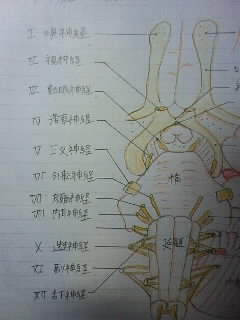 I 嗅神経
II 視神経
III 動眼神経
IV 滑車神経
V 三叉神経
VI 外転神経
VII 顔面神経
VIII 内耳神経
橋
X 迷走神経
延髄
XI 副神経
XII 舌下神経